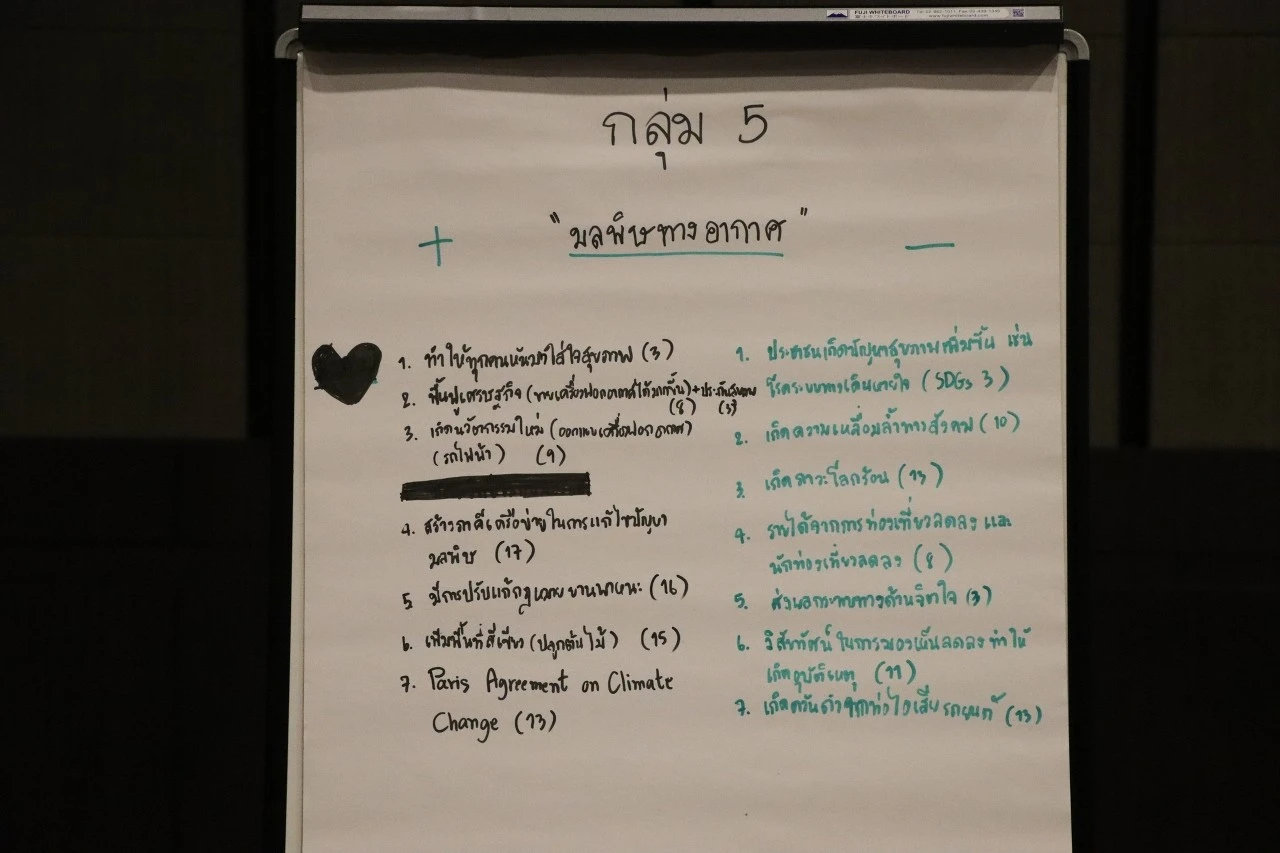 FUJI WHITEBOARD
www.fujiwhiteboard.com
กลุ่ม 5
"มลพิษทางอากาศ"
+
−
1. ทำให้ทุกคนหันมาใส่ใจสุขภาพ (3)
2. ฟื้นฟูเศรษฐกิจ (ขายเครื่องฟอกอากาศได้มากขึ้น) + ประกันสุขภาพ
(8) (3)
3. เกิดนวัตกรรมใหม่ (ออกแบบเครื่องฟอกอากาศ)
(รถไฟฟ้า) (9)
4. สร้างภาคีเครือข่ายในการแก้ไขปัญหา
มลพิษ (17)
5. มีการปรับแก้กฎหมายยานพาหนะ (16)
6. เพิ่มพื้นที่สีเขียว (ปลูกต้นไม้) (15)
7. Paris Agreement on Climate
Change (13)
1. ประชาชนเกิดปัญหาสุขภาพเพิ่มขึ้น เช่น
โรคระบบทางเดินหายใจ (SDGs 3)
2. เกิดความเหลื่อมล้ำทางสังคม (10)
3. เกิดภาวะโลกร้อน (13)
4. รายได้จากการท่องเที่ยวลดลง และ
นักท่องเที่ยวลดลง (8)
5. ส่งผลกระทบทางด้านจิตใจ (3)
6. วิสัยทัศน์ในการมองเห็นลดลงทำให้
เกิดอุบัติเหตุ (11)
7. เกิดควันดำจากท่อไอเสียรถยนต์ (13)